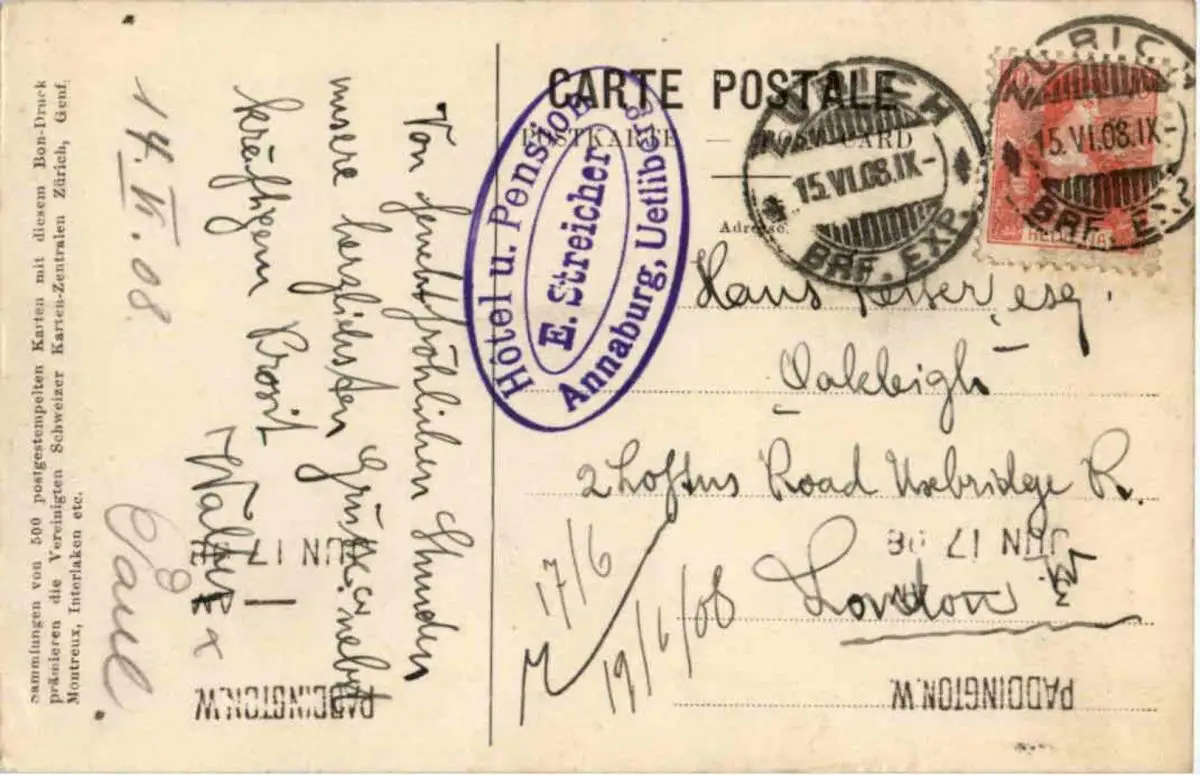 CARTE POSTALE
POSTKARTE — POST CARD
Adresse.
ZÜRICH
15.VI.08.IX-
BRF. EXP.
ZÜRICH
15.VI.08.IX-
BRF. EXP.
HELVETIA
Hôtel u. Pension
E. Streicher
Annaburg, Uetliberg
Hans esq.
Oakleigh
2 Loftus Road Uxbridge R.
London W
JUN 17 08
PADDINGTON.W.
17/6
19/6/08
14. VI. 08
Von fröhlichen Stunden
unsere herzlichsten Grüsse nebst
kräftigem Prosit
Walter
JUN 17
PADDINGTON.W.
Sammlungen von 500 postgestempelten Karten mit diesem Bon-Druck
prämieren die Vereinigten Schweizer Karten-Zentralen Zürich, Genf,
Montreux, Interlaken etc.